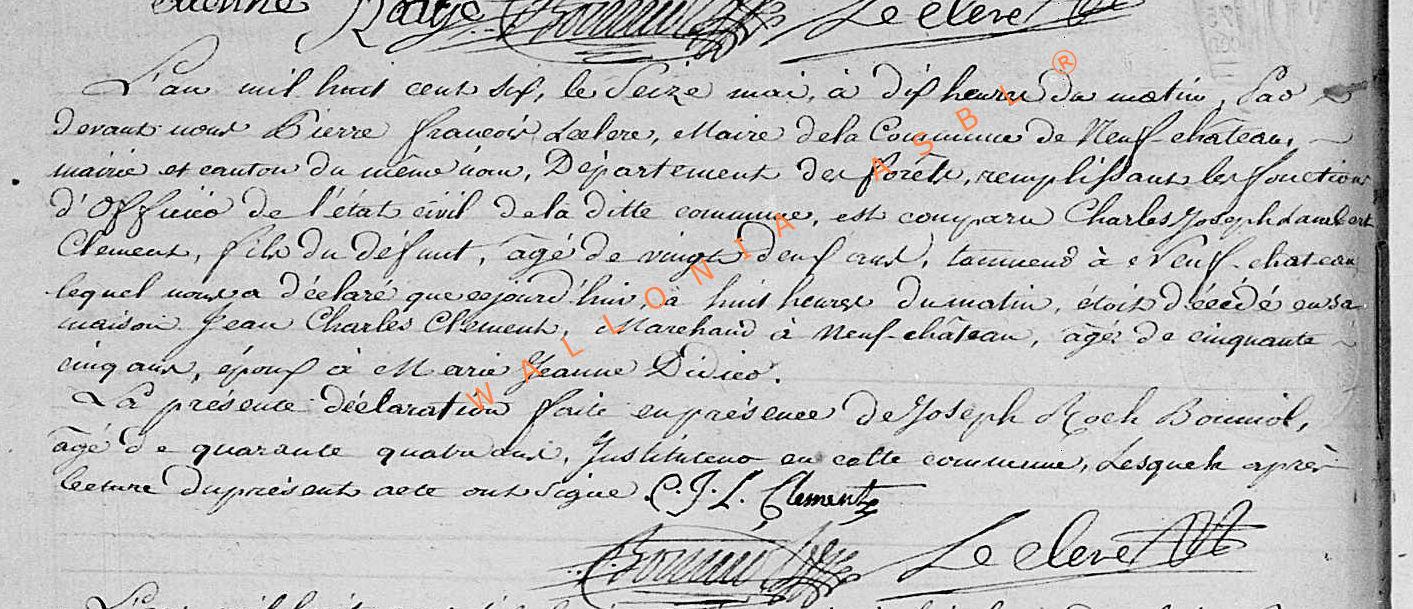 Etienne Leclere
L'an mil huit cent six, le Seize mai, à dix heures du matin, Par
devant nous Pierre francois Leclere, Maire de la Commune de Neuf-château,
mairie et canton du même nom, Département des forêts, remplissant les fonctions
d'Officier de l'état civil de la ditte commune, est comparu Charles Joseph Lambert
Clement, fils du défunt, âgé de vingt deux ans, tanneur à Neuf-chateau
lequel nous a déclaré que cejourd'hui, à huit heures du matin, étoit décédé en sa
maison Jean Charles Clement, Marchand à Neuf-château, âgé de cinquante
cinq ans, époux à Marie Jeanne Didier.
La présente déclaration faite en présence de Joseph Roch Bonniol,
âgé de quarante quatre ans, Instituteur en cette commune, Lesquels après
lecture du présent acte ont signé. C. J. L. Clement
Leclere
L'an mil huit
WALLONIA ASBL ®